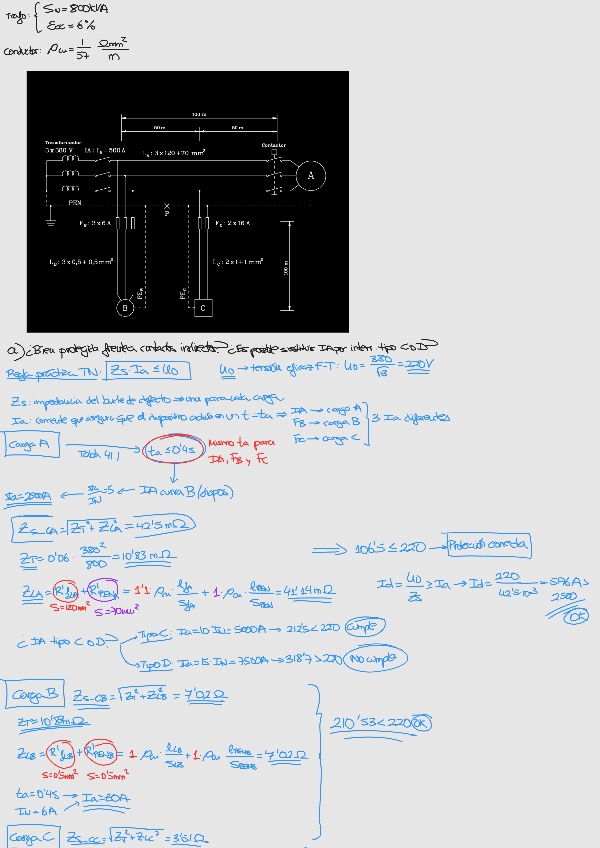 Trafo: { SN = 800kVA
Ecc = 6%
Conductor: ρcu = 1/57 Ωmm²/m
100 m
50 m 50 m
Transformador
3 x 380 V IA: In = 500 A
LA: 3 x 120 + 70 mm²
Contactor
A
PEN
P
FB: 3 x 6 A
FC: 2 x 16 A
LB: 3 x 0,5 + 0,5 mm²
PEB
PEC
LC: 2 x 1 + 1 mm²
100 m
B
C
a) ¿Bien protegida frente a contactos indirectos? ¿Es posible sustituir IA por interr. tipo C o D?
Regla práctica TN: Zs · Ia ≤ U0 U0 → tensión eficaz F-T: U0 = 380/√3 = 220V
Zs: impedancia del bucle de defecto → una para cada carga
Ia: corriente que asegura que el dispositivo actúa en un t = ta → IA → carga A
FB → carga B
FC → carga C
3 Ia diferentes
Carga A Tabla 41.1 → ta ≤ 0'4s mismo ta para
IA, FB y FC
Ia = 2500A ← Ia/IN = 5 ← IA curva B
Zs_CA = √ZT² + ZLA² = 42'5 mΩ
ZT = 0'06 · 380²/800 = 10'83 mΩ
⇒ 106'5 ≤ 220 → Protección correcta
ZLA = R'LA + R'PENA = 1'1 ρcu · lLA/SLA + 1 · ρcu · lPEN/SPEN = 41'14 mΩ
S=120mm² S=70mm²
Id = U0/Zs ≥ Ia → Id = 220/42'5·10⁻³ = 5176A >
2500
OK
¿IA tipo C o D? Tipo C: Ia = 10 IN = 5000A → 212'5 < 220 Cumple
Tipo D: Ia = 15 IN = 7500A → 318'7 > 220 No cumple
Carga B Zs_CB = √ZT² + ZLB² = 7'02 Ω
ZT = 10'83 mΩ
210'53 < 220 OK
ZLB = R'LB + R'PENB = 1 · ρcu · lLB/SLB + 1 · ρcu · lPENB/SPENB = 7'02 Ω
S=0'5mm² S=0'5mm²
ta = 0'4s → Ia = 30A
IN = 6A
Carga C Zs_CC = √ZT² + ZLC² = 3'51 Ω